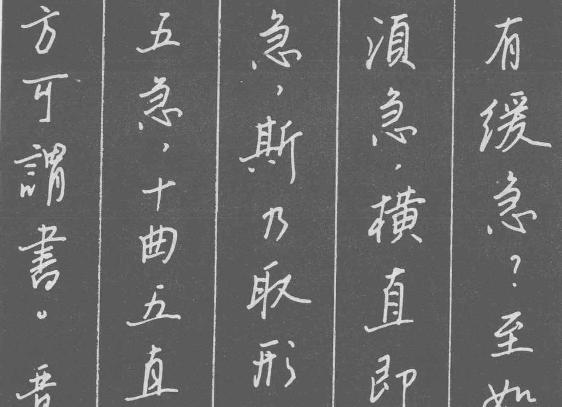 有緩急？至如
須急，橫直即
急，斯乃取形
五急，十曲五直
方可謂書。若